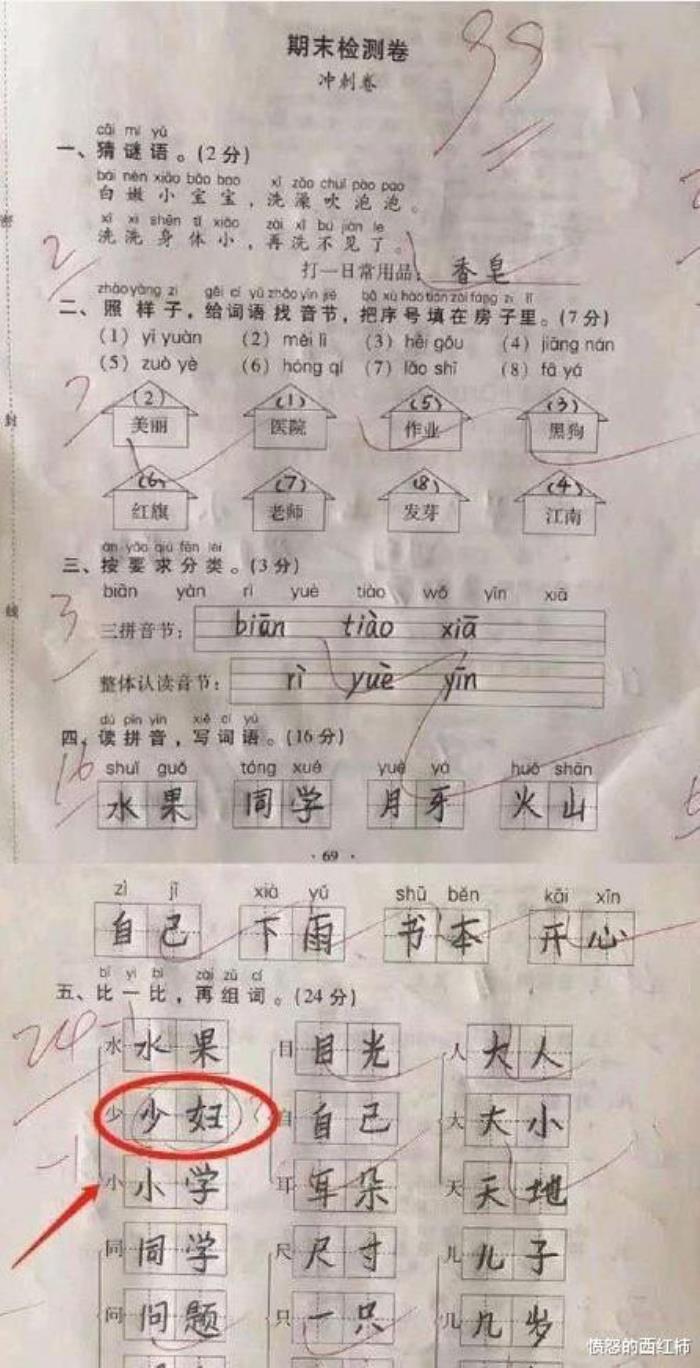 期末检测卷
99
冲刺卷
cāi mí yǔ
一、猜谜语。(2分)
bái nèn xiǎo bǎo bao xǐ zǎo chuī pào pao
白嫩小宝宝，洗澡吹泡泡。
xǐ xǐ shēn tǐ xiǎo zài xǐ bú jiàn le
洗洗身体小，再洗不见了。
密
2
打一日常用品：香皂
zhào yàng zi gěi cí yǔ zhǎo yīn jié bǎ xù hào tián zài fáng zi lǐ
二、照样子，给词语找音节，把序号填在房子里。(7分)
(1) yī yuàn (2) měi lì (3) hēi gǒu (4) jiāng nán
(5) zuò yè (6) hóng qí (7) lǎo shī (8) fā yá
7
(2) (1) (5) (3)
美丽 医院 作业 黑狗
封
(6) (7) (8) (4)
红旗 老师 发芽 江南
àn yāo qiú fēn lèi
三、按要求分类。(3分)
biān yàn rì yuè tiào wǒ yīn xiā
线
3
三拼音节：biān tiào xiā
整体认读音节：rì yuè yīn
dú pīn yīn xiě cí yǔ
四、读拼音，写词语。(16分)
16
shuǐ guǒ tóng xué yuè yá huǒ shān
水果 同学 月牙 火山
· 69 ·
zì jǐ xià yǔ shū běn kāi xīn
自己 下雨 书本 开心
bǐ yi bǐ zài zǔ cí
五、比一比，再组词。(24分)
24-1
水 水果 目 目光 人 大人
少 少妇 自 自己 大 大小
-1
小 小学 耳 耳朵 天 天地
同 同学 尺 尺寸 儿 儿子
问 问题 只 一只 几 几岁
愤怒的西红柿